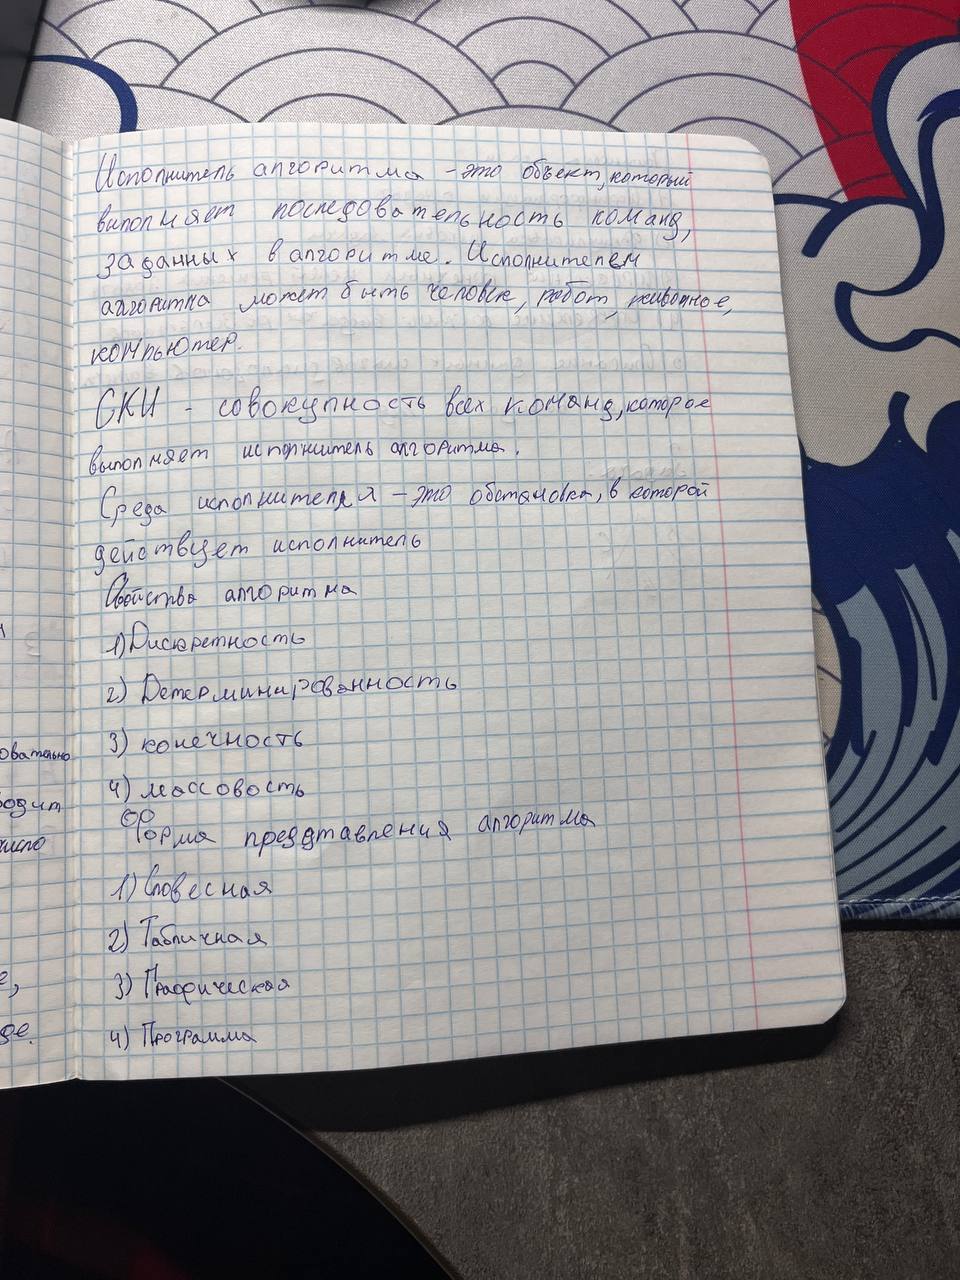 Исполнитель алгоритма - это объект, который
выполняет последовательность команд,
заданных в алгоритме. Исполнителем
алгоритма может быть человек, робот, животное,
компьютер.
СКИ - совокупность всех команд, которое
выполняет исполнитель алгоритма.
Среда исполнителя - это обстановка, в которой
действует исполнитель
Свойства алгоритма
1) Дискретность
2) Детерминированность
3) конечность
4) массовость
Форма представления алгоритма
1) Словесная
2) Табличная
3) Графическая
4) Программа